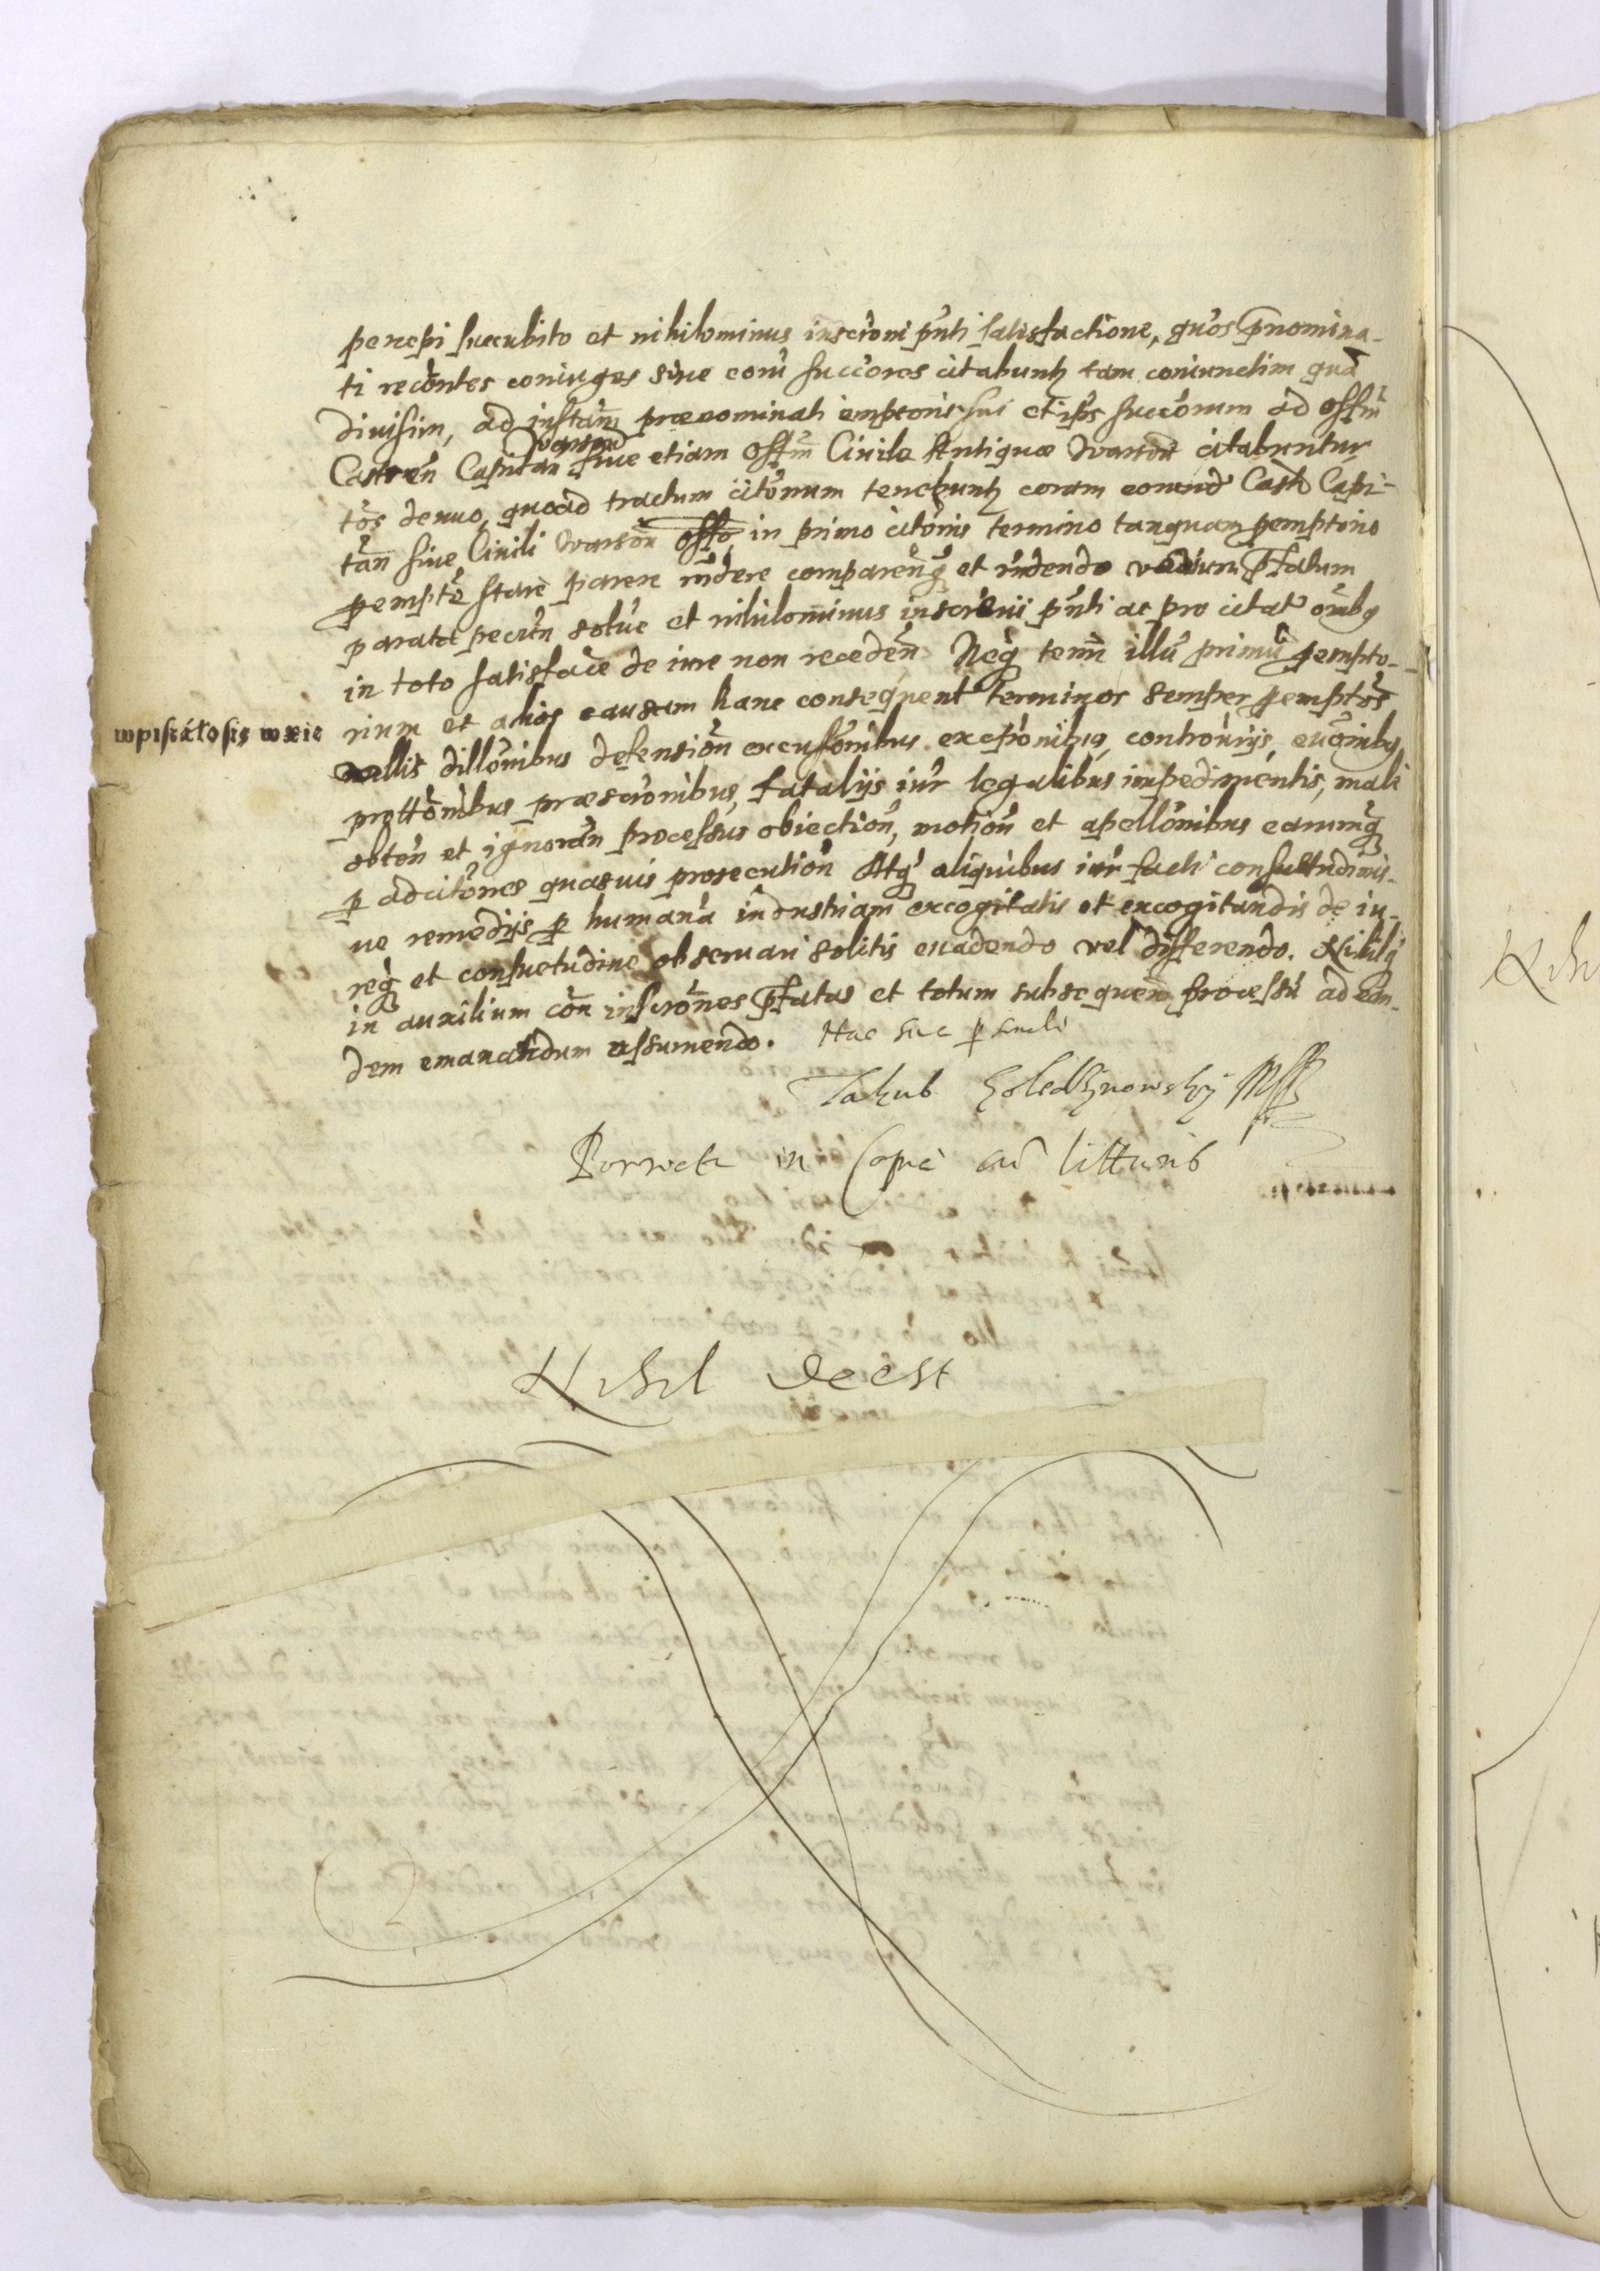 perepi succubito et nihilominus inscroni pnti satisfactione, quos pnomina-
ti recontes coniuges sive eoru succores citabunt tam coniunctim qua
divisim, ad instam prænominati emptoris sui et ips succorum ad offm
Castren Capitan Varsou sive etiam offm Civile Antiquæ Varsou citabuntur
tos denuo, quoad tractum citonum tenebunt coram eorund Castr Capi-
tan sive Civili Varsou offo in primo citonis termino tanquam pemptorio
pempte stare parere rndere compareng et rndendo vadium pfatum
parata pecun solve et nihilominus inscroni pnti ac pro citat omibq
in toto satisface de iure non receden. Neq temi illu primu pempto-
rium et alios causam hanc consequent terminos semper pemptos
wpisałosię wxie
nullis dillonibus defension excusonibus exceponibus, controuijs, euonibus
prottonibus præscronibus, fatalijs iur legalibus impedimentis, mali
obton et ignoran processus obiection, motion et apellonibus earumq
p adcitones quasuis prosecution Atq aliquibus iur facti consuetudinis-
ue remedijs p humana industriam excogitatis et excogitandis de iu-
req et consuetudine obseruari solitis euadendo vel differendo. Nihilq
in auxilium con inscrones pfatas et totum subsequen processu ad ean-
dem emanandum assumendo. Hac sua p
Jakub
Correcta in Copia cu litturis
Nihil deest